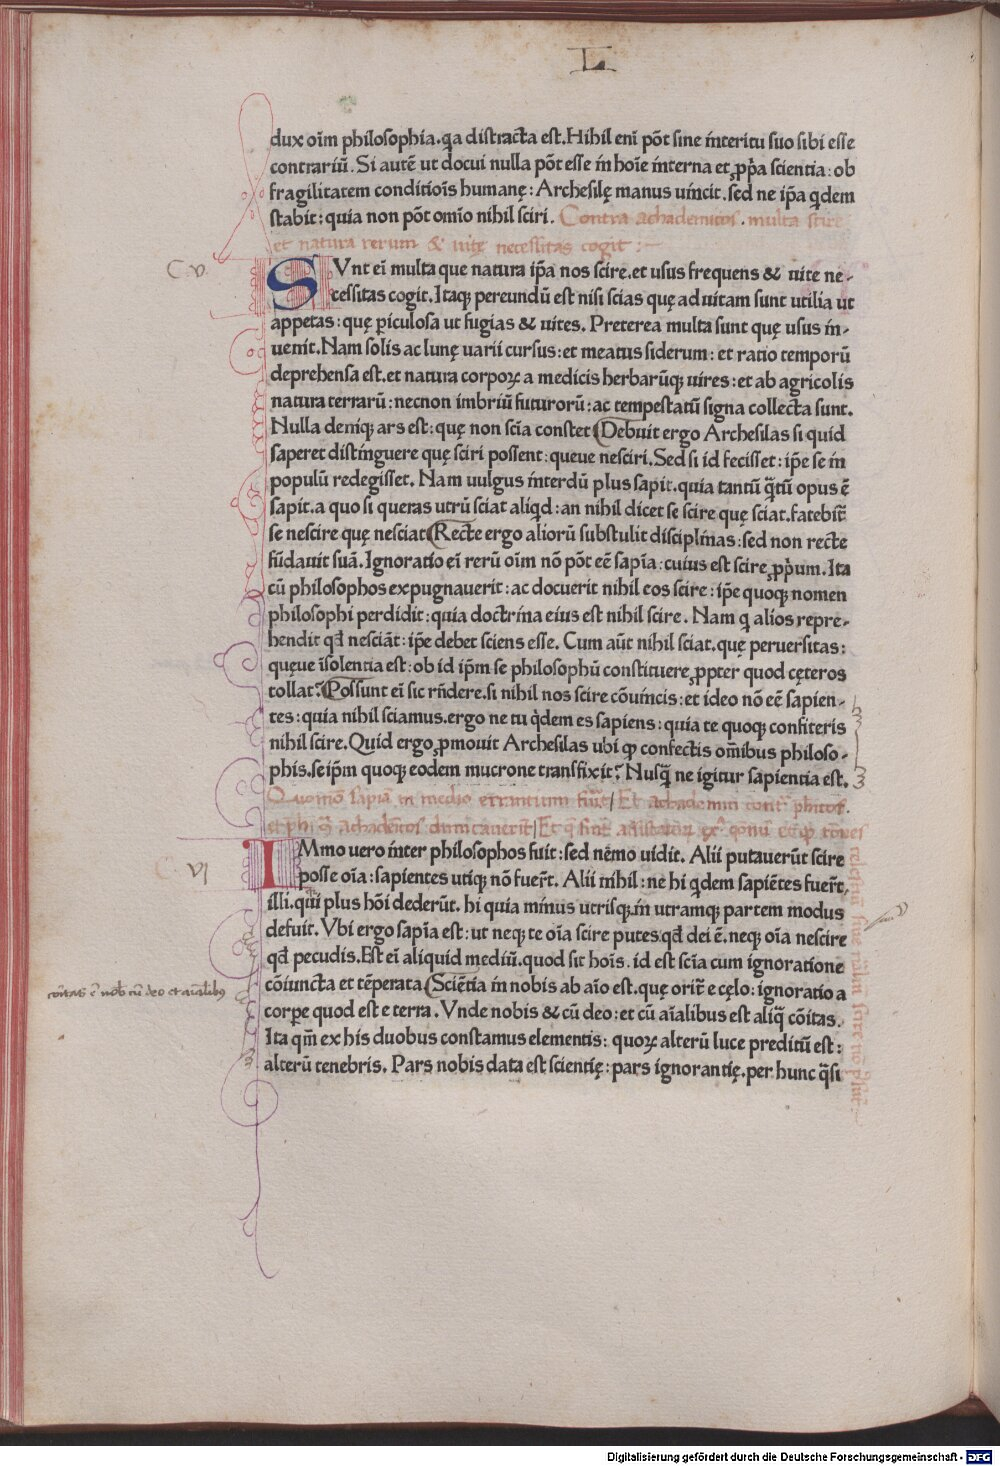 L
dux oīm philosophia.qa distracta est.Hihil enī pōt sine interitu suo sibi esse
contrariū. Si autē ut docui nulla pōt esse in hoīe interna et ꝓpⁱa scientia: ob
fragilitatem conditiōis humanę: Archesilę manus uincit.sed ne ip̄a qdem
stabit: quia non pōt omīo nihil sciri. Contra achademicos. multa scire
et natura rerum & uitę necessitas cogit :~
C. v.
SVnt eī multa que natura ip̄a nos scire.et usus frequens & uite ne-
cessitas cogit.Itaqꝫ pereundū est nisi scias quę ad uitam sunt utilia ut
appetas: quę ꝑiculosa ut fugias & uites. Preterea multa sunt quę usus in-
uenit.Nam solis ac lunę uarii cursus: et meatus siderum: et ratio temporū
deprehensa est.et natura corpoꝝ a medicis herbarūqꝫ uires: et ab agricolis
natura terrarū: necnon imbriū futurorū: ac tempestatū signa collecta sunt.
Nulla deniqꝫ ars est: quę non scīa constet Debuit ergo Archesilas si quid
saperet distinguere quę sciri possent: queue nesciri.Sed si id fecisset: ip̄e se in
populū redegisset. Nam uulgus interdū plus sapit.quia tantū q̄tū opus ē
sapit.a quo si queras utrū sciat aliqd: an nihil dicet se scire quę sciat.fatebit̄
se nescire quę nesciat Recte ergo aliorū substulit disciplinas: sed non recte
fūdauit suā.Ignoratio eī rerū oīm nō pōt eē sapīa: cuius est scire ꝓpⁱum.Ita
cū philosophos expugnauerit: ac docuerit nihil eos scire: ip̄e quoqꝫ nomen
philosophi perdidit: quia doctrina eius est nihil scire. Nam q alios repre-
hendit qđ nesciāt: ip̄e debet sciens esse. Cum aūt nihil sciat.quę peruersitas:
quęue īsolentia est: ob id ip̄m se philosophū constituere ꝓpter quod cęteros
tollat? Possunt eī sic rn̄dere.si nihil nos scire cōuincis: et ideo nō eē sapien-
tes: quia nihil sciamus.ergo ne tu qdem es sapiens: quia te quoqꝫ confiteris
nihil scire.Quid ergo ꝓmouit Archesilas ubi qp confectis om̄ibus philoso-
phis.seip̄m quoqꝫ eodem mucrone transfixit? Nusq̄ ne igitur sapientia est.
Quomō sapiā in medio errantium fuit / Et achademici
VI
IMmo uero inter philosophos fuit: sed nemo uidit. Alii putauerūt scire
posse oīa: sapientes utiqꝫ nō fuer̄t. Alii nihil: ne hi qdem sapiētes fuer̄t.
illi.qm̄ plus hōi dederūt. hi quia minus utrisqꝫ.in utramqꝫ partem modus
defuit. Vbi ergo sapīa est: ut neqꝫ te oīa scire putes qđ dei ē.neqꝫ oīa nescire
qđ pecudis.Est eī aliquid mediū.quod sit hoīs.id est scīa cum ignoratione
cōiuncta et tēperata Sciētia in nobis ab aīo est.quę orit̄ e cęlo: ignoratio a
corꝑe quod est e terra. Vnde nobis & cū deo: et cū aīalibus est aliq̄ cōitas.
Ita qm̄ ex his duobus constamus elementis: quoꝝ alterū luce preditū est:
alterū tenebris. Pars nobis data est scientię: pars ignorantię.per hunc q̄si
Digitalisierung gefördert durch die Deutsche Forschungsgemeinschaft - DFG